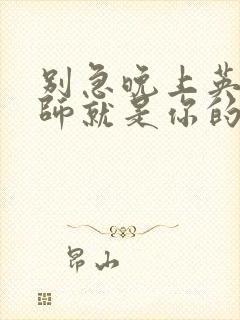 别急晚上英
师就是你的
昂山